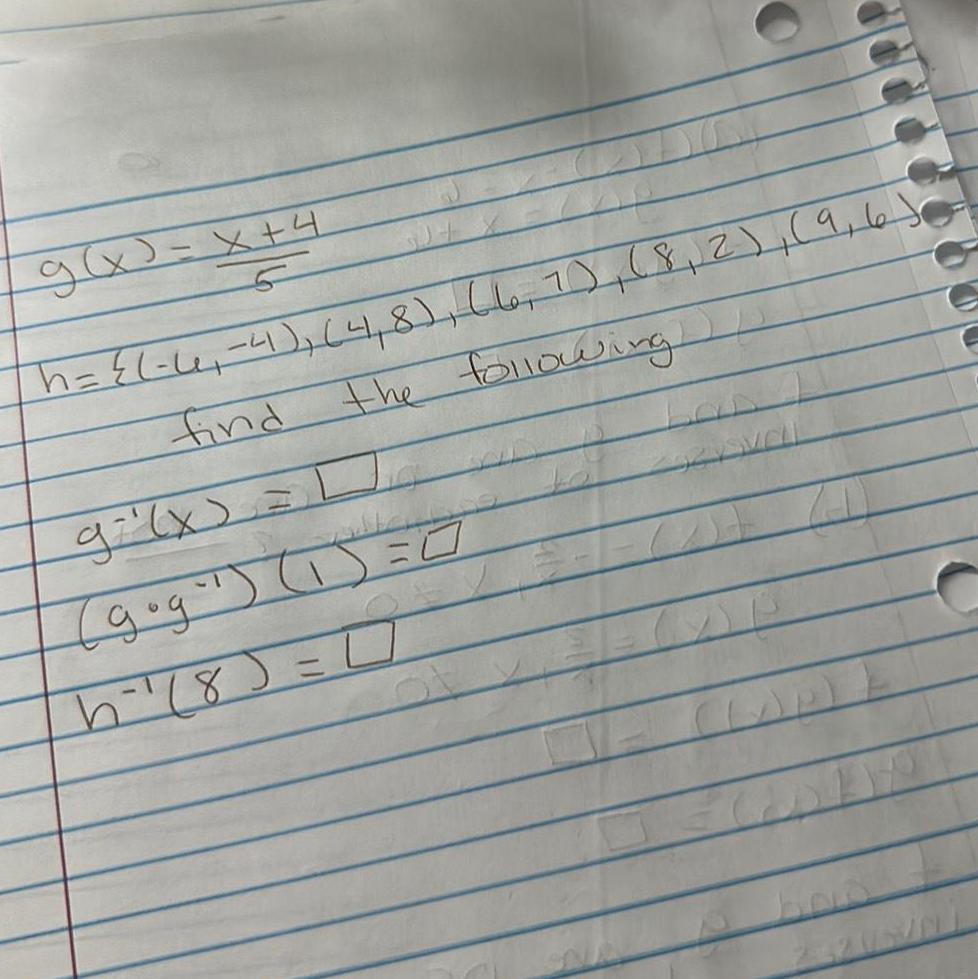 g(x) = x+4/5
h={(-6,-4),(4,8),(6,7),(8,2),(9,6)
find the following
g⁻¹(x) = □
(g∘g⁻¹)(1) = □
h⁻¹(8) = □